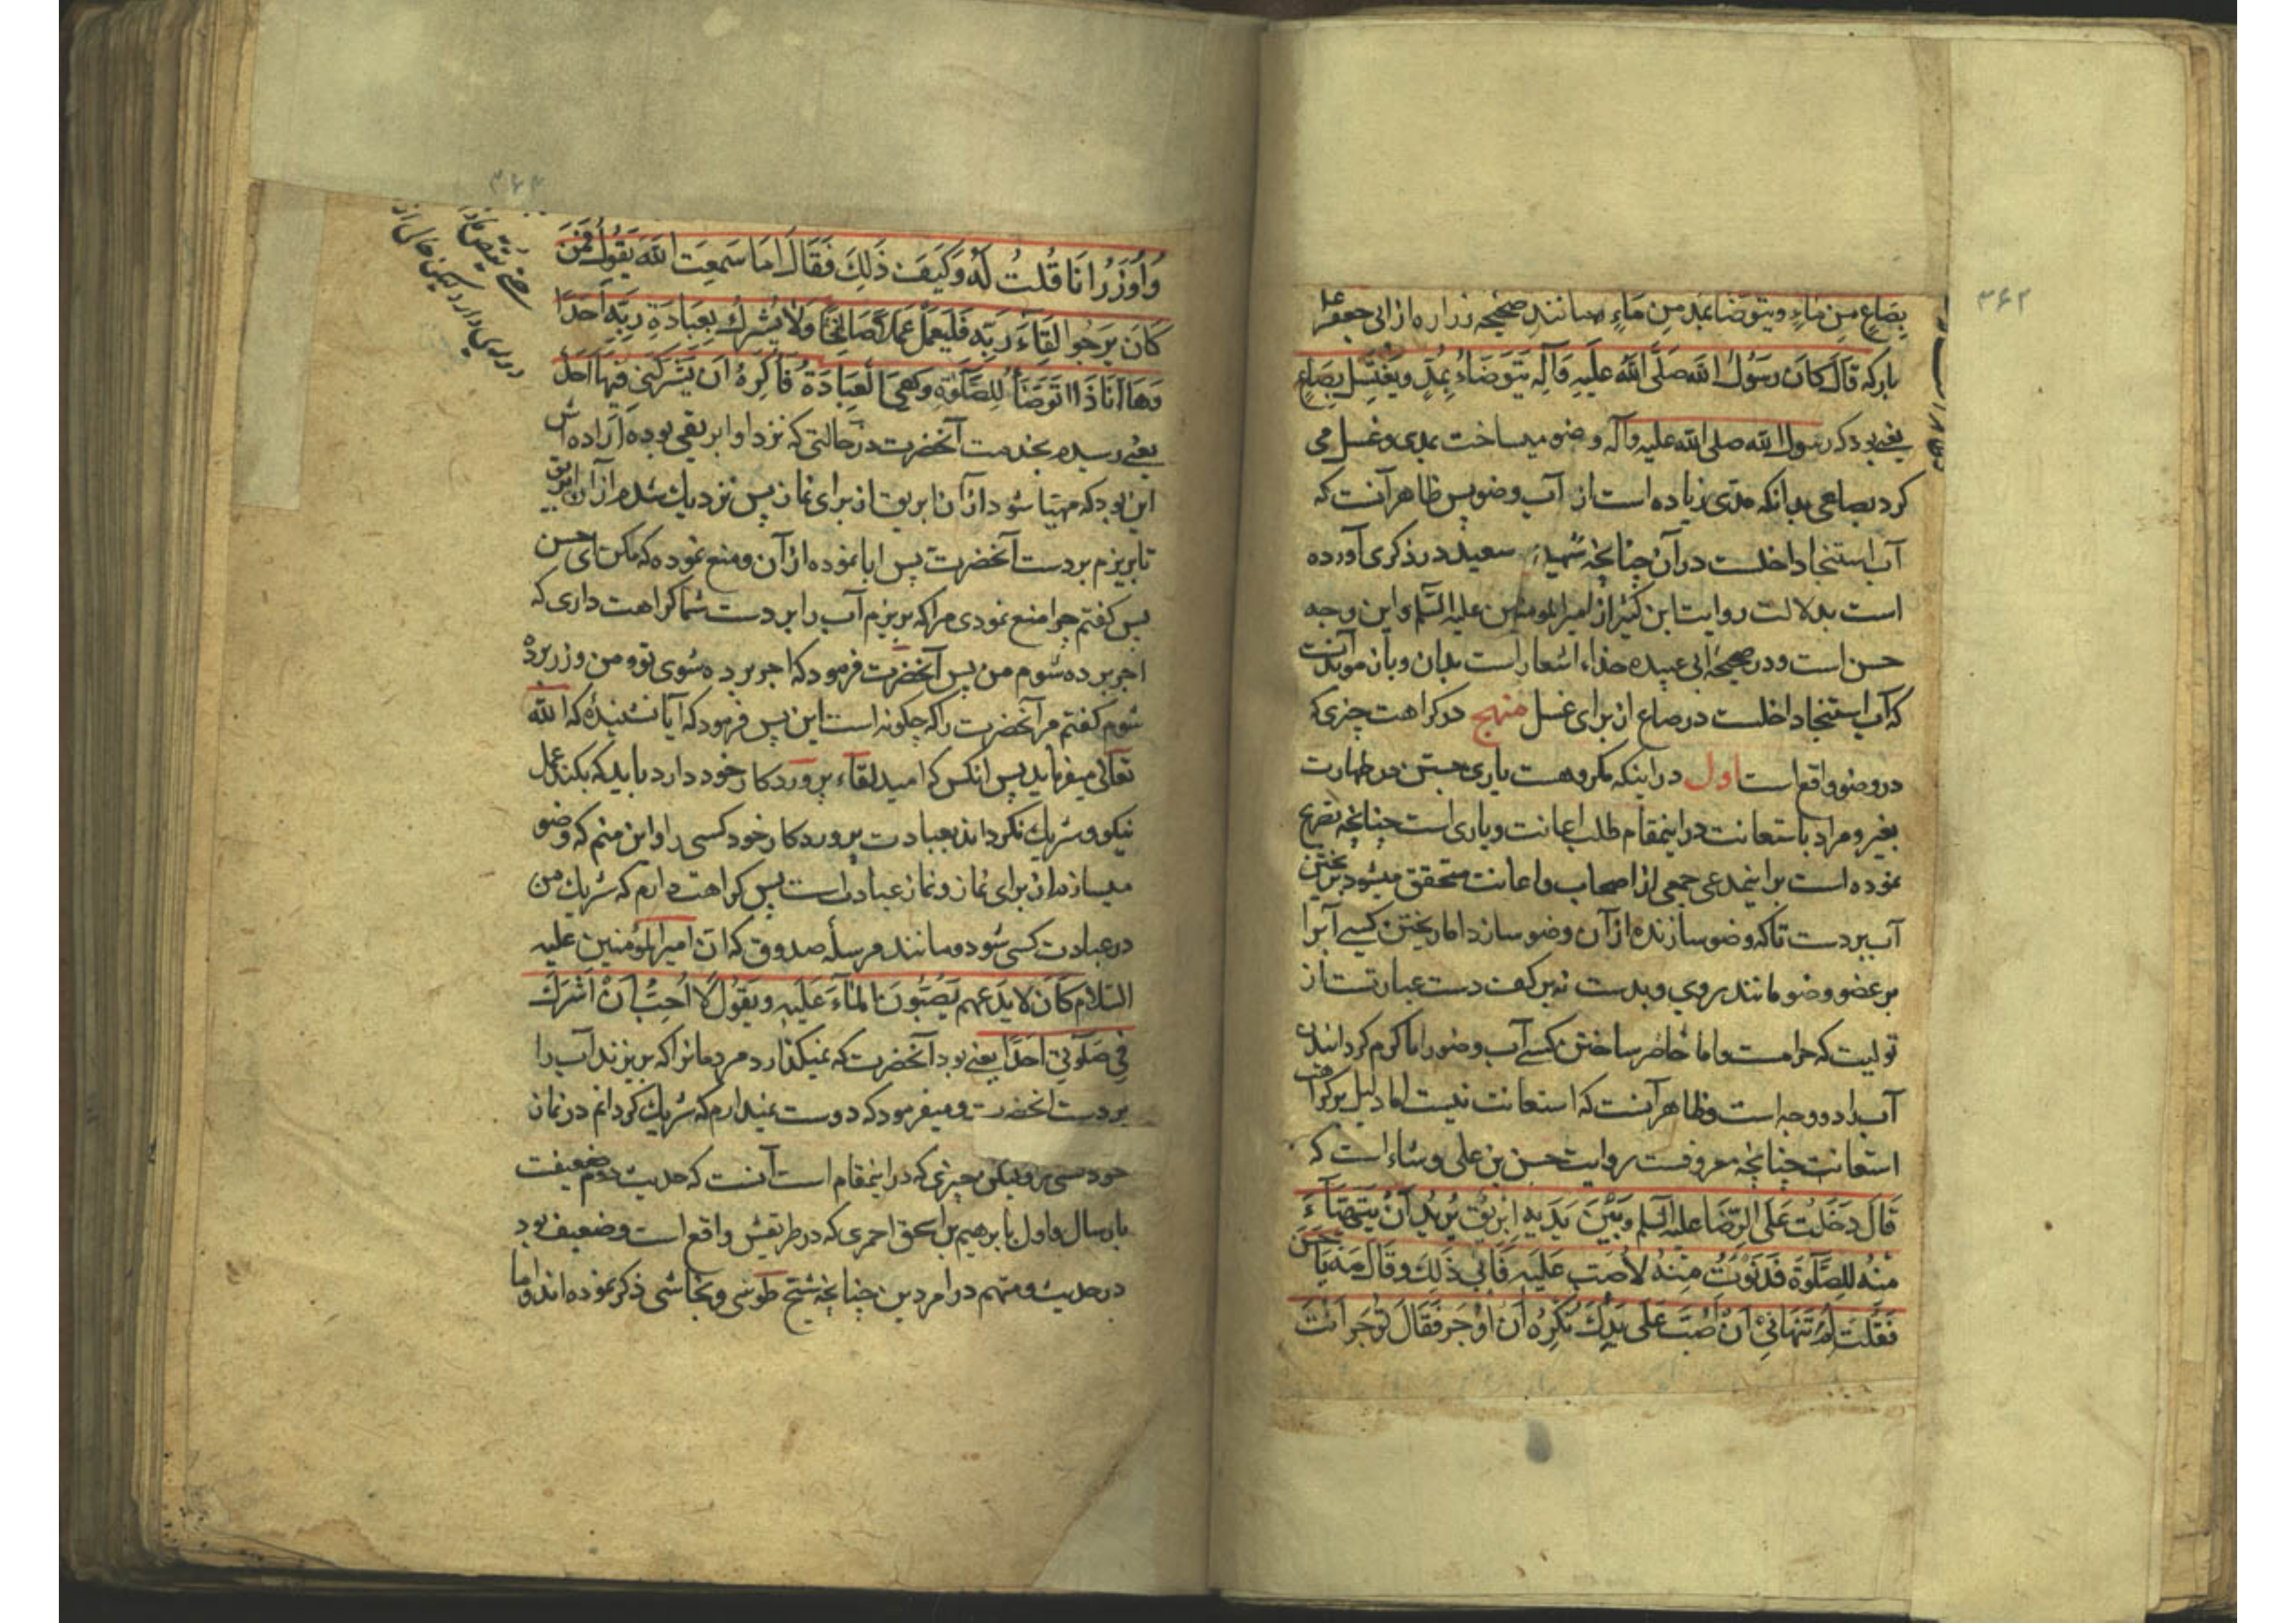 ۳۶۲
بصاع من ماء ویتوضأ بمد من ماء و مانند صحیحه زراره از ابی جعفر
بارکه قال کان رسول الله صلی الله علیه وآله یتوضاء بمد ویغتسل بصاع
یعنی بود که رسول الله صلی الله علیه وآله وضو میساخت بمدی و غسل می
کرد بصاعی بدانکه مدی زیاده است از آب وضو پس ظاهر آنست که
آب استنجا داخلست در آن چنانچه شهید سعید در ذکری آورده
است بدلالت روایت ابن کثیر از امیرالمومنین علیه السلم و این وجه
حسن است و در صحیحه ابی عبیده حذاء اشعار است بدان و بان موید است
که آب استنجا داخلست در صاع از برای غسل منهج در کراهت چیزی که
در وضو واقع است اول در اینکه مکروهست یاری جستن در طهارت
بغیر و مراد باستعانت در اینمقام طلب اعانت و یاری است چنانچه تصریح
نموده است بر اینمدعی جمعی از اصحاب و اعانت متحقق میشود بریختن
آب بر دست تا که وضو سازنده از آن وضو سازد اما ریختن کسی آبرا
بر عضو وضو مانند روی و بدست نه بر کف دست عبارتست از
تولیت که حرامست و اما حاضر ساختن کسی آب وضو را یا گرم گردانیدن
آب را دو وجه است و ظاهر آنست که استعانت نیست اما دلیل بر کراهت
استعانت چنانچه معروفست روایت حسن بن علی وشاء است که
قال دخلت علی الرضا علیه السلم وبین یدیه ابریق یرید ان یتهیاء
منه للصلوة فدنوت منه لاصب علیه فابی ذلک وقال مه یا حسن
فقلت لم تنهانی ان اصب علی یدک تکره ان اوجر فقال توجر انت
۳۶۳
واوزر انا قلت له وکیف ذلک فقال اما سمعت الله یقول فمن
کان یرجوا لقاء ربه فلیعمل عملا صالحا ولا یشرک بعبادة ربه احدا
وها انا ذا اتوضأ للصلوة وهی العبادة فاکره ان یشرکنی فیها احد
یعنی رسیدم بخدمت آنحضرت در حالتی که نزد او ابریقی بوده اراده اش
این بود که مهیا شود از آن ابریق از برای نماز پس نزدیک شدم از آن ابریق
تا بریزم بر دست آنحضرت پس ابا نموده از آن و منع نموده که مکن ای حسن
پس گفتم چرا منع نمودی مرا که بریزم آب را بر دست شما کراهت داری که
اجر برده شوم من پس آنحضرت فرمود که اجر برده شوی تو و من وزر برده
شوم گفتم مر آنحضرت را که چگونه است این پس فرمود که آیا نشنیدهٔ که الله
تعالی میفرماید پس انکس که امید لقاء پروردکار خود دارد باید که بکند عمل
نیکو و شریک نکرداند بعبادت پروردکار خود کسی را و این منم که وضو
میسازم از برای نماز و نماز عبادت است پس کراهت دارم که شریک من
در عبادت کسی شود و مانند مرسلهٔ صدوق که ان امیرالمؤمنین علیه
السلام کان لا یدعهم یصبون الماء علیه ویقول لا احب ان اشرک
فی صلوتی احدا یعنی بود آنحضرت که نمیگذارد مردمانرا که بریزند آب را
بر دست انحضرت و میفرمود که دوست نمیدارم که شریک کردانم در نماز
خود کسی را و لیکن چیزی که در اینمقام است آنست که حدیث دوم ضعیفست
بارسال و اول بابرهیم بن اسحق احمری که در طریقش واقع است و ضعیف بود
در حدیث و متهم در امر دین چنانچه شیخ طوسی و نجاشی ذکر نموده اند و اما